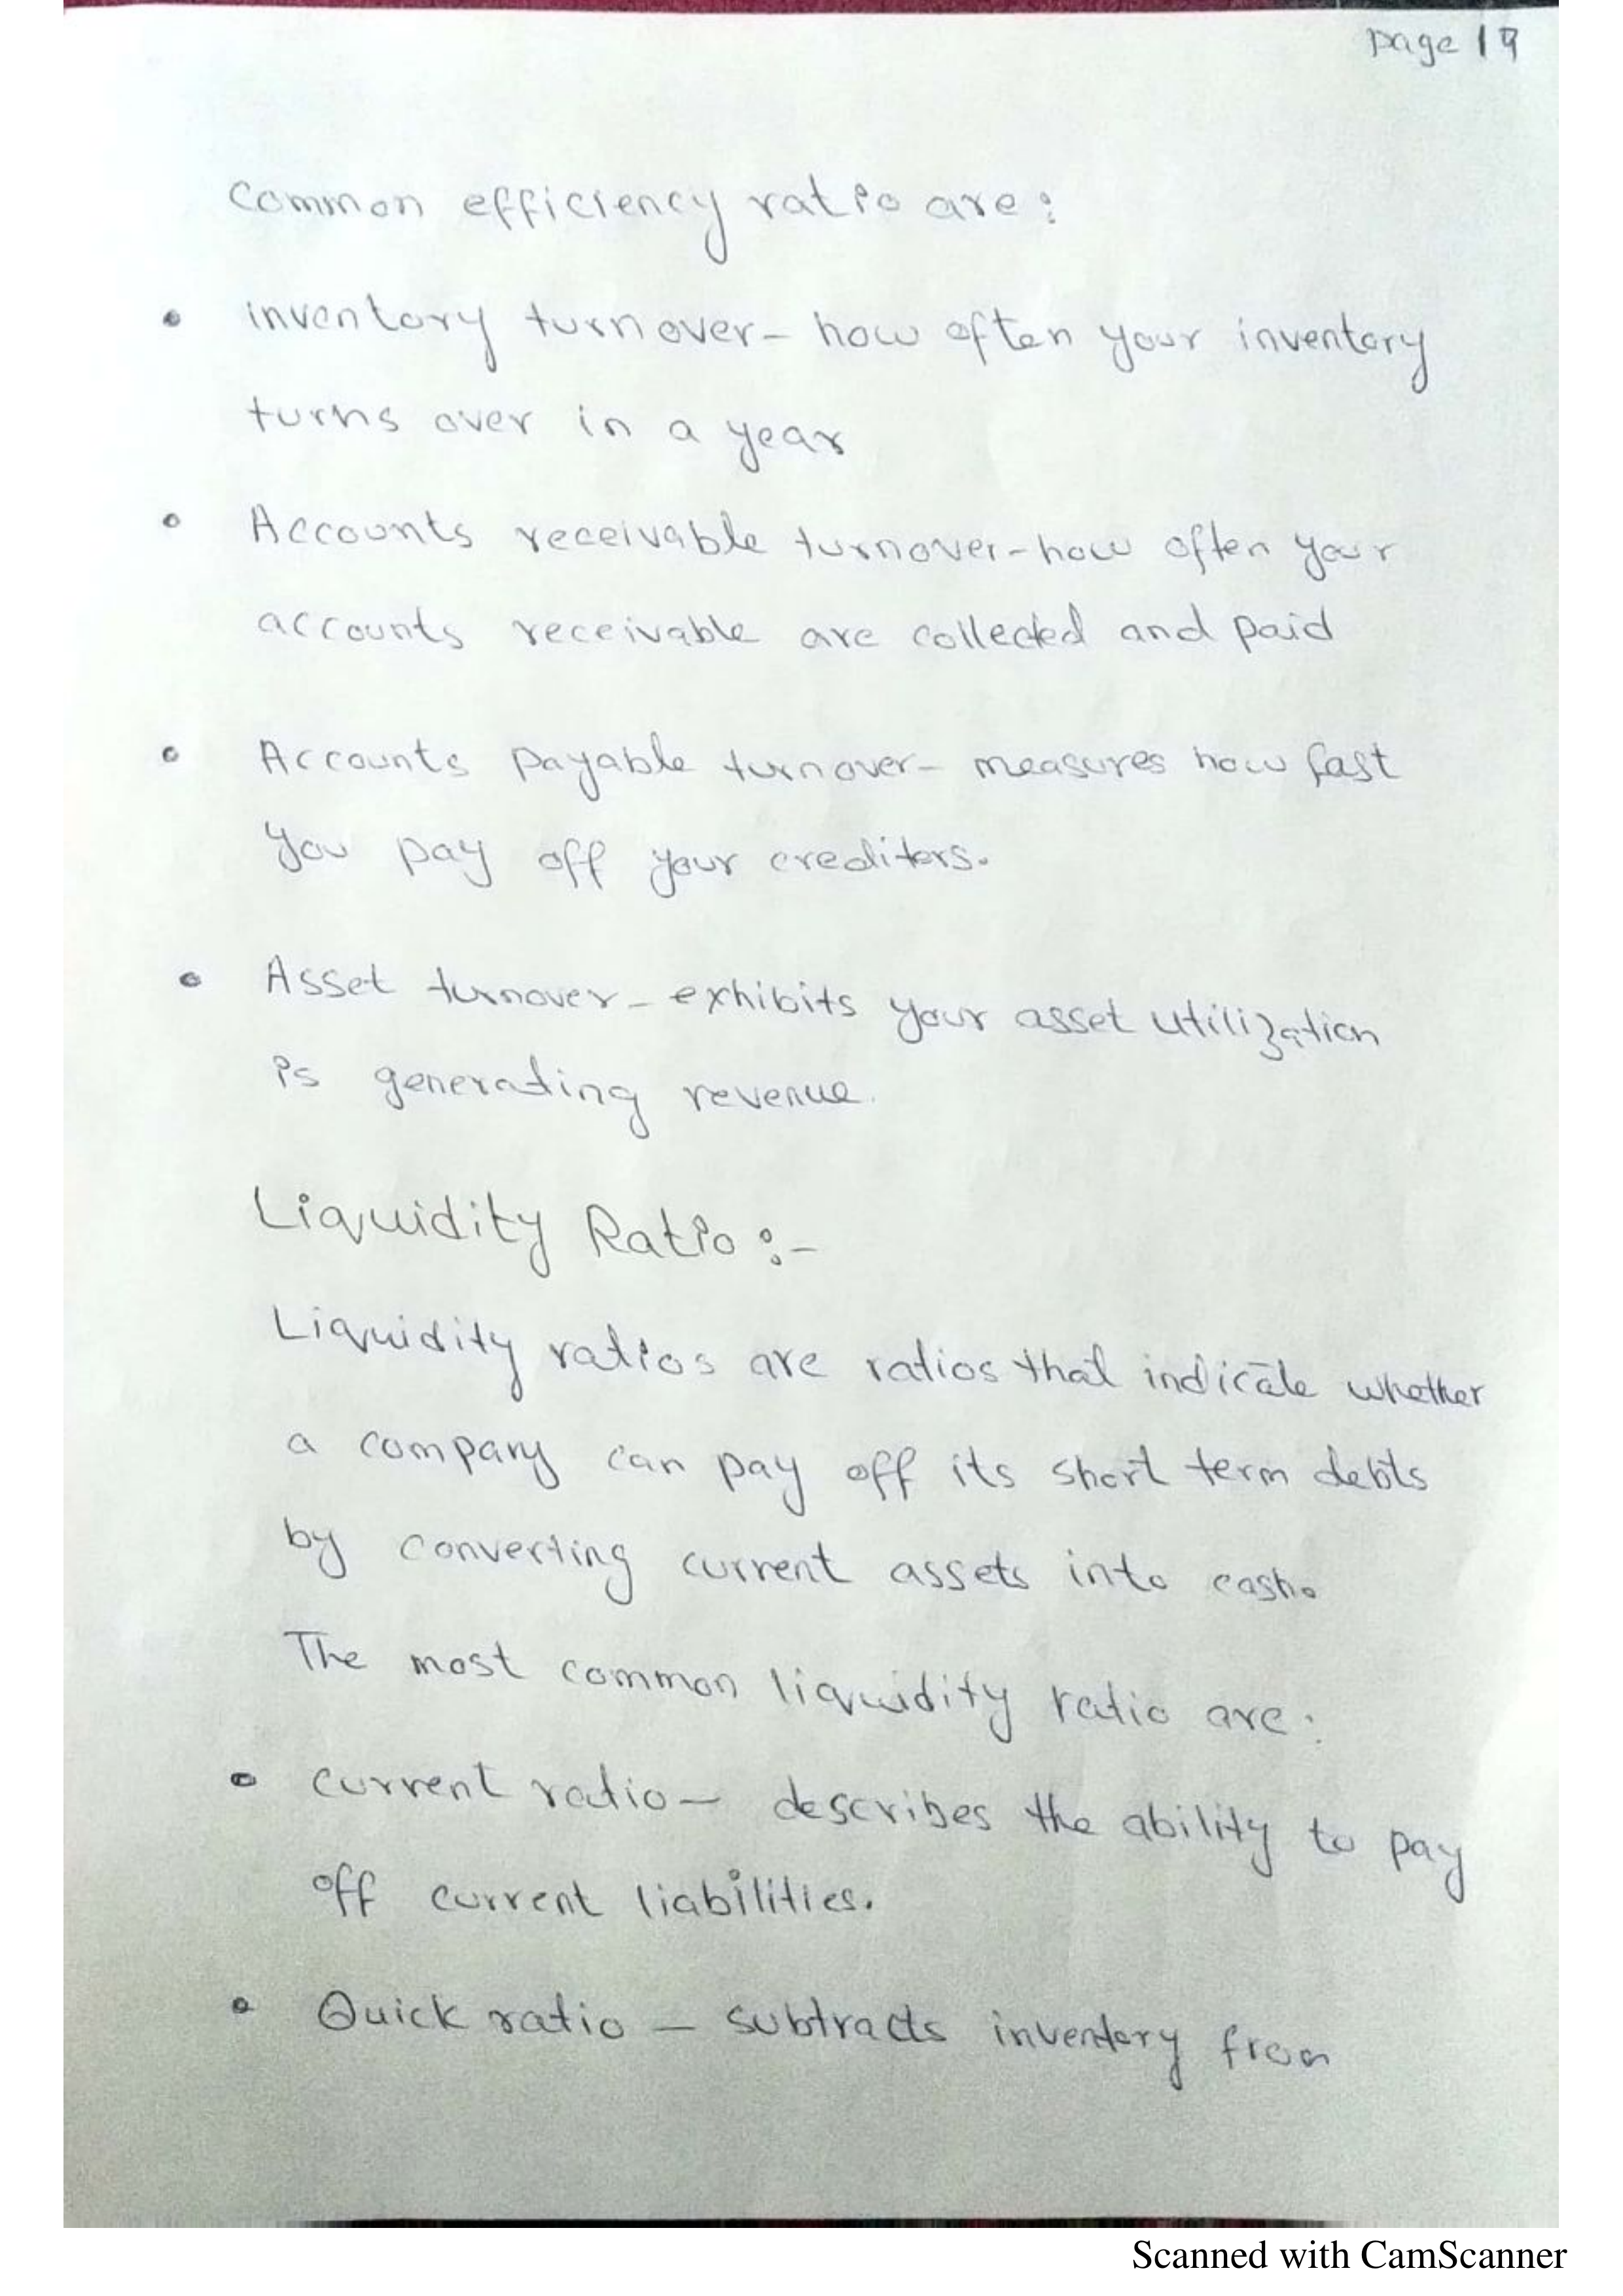 Page 19
Common efficiency ratio are:
• inventory turnover - how often your inventory
turns over in a year
• Accounts receivable turnover - how often your
accounts receivable are collected and paid
• Accounts payable turnover - measures how fast
you pay off your crediters.
• Asset turnover - exhibits your asset utilization
is generating revenue.
Liquidity Ratio :-
Liquidity ratios are ratios that indicate whether
a company can pay off its short term debts
by converting current assets into cash.
The most common liquidity ratio are:
• current ratio - describes the ability to pay
off current liabilities.
• Quick ratio - subtracts inventory from
Scanned with CamScanner